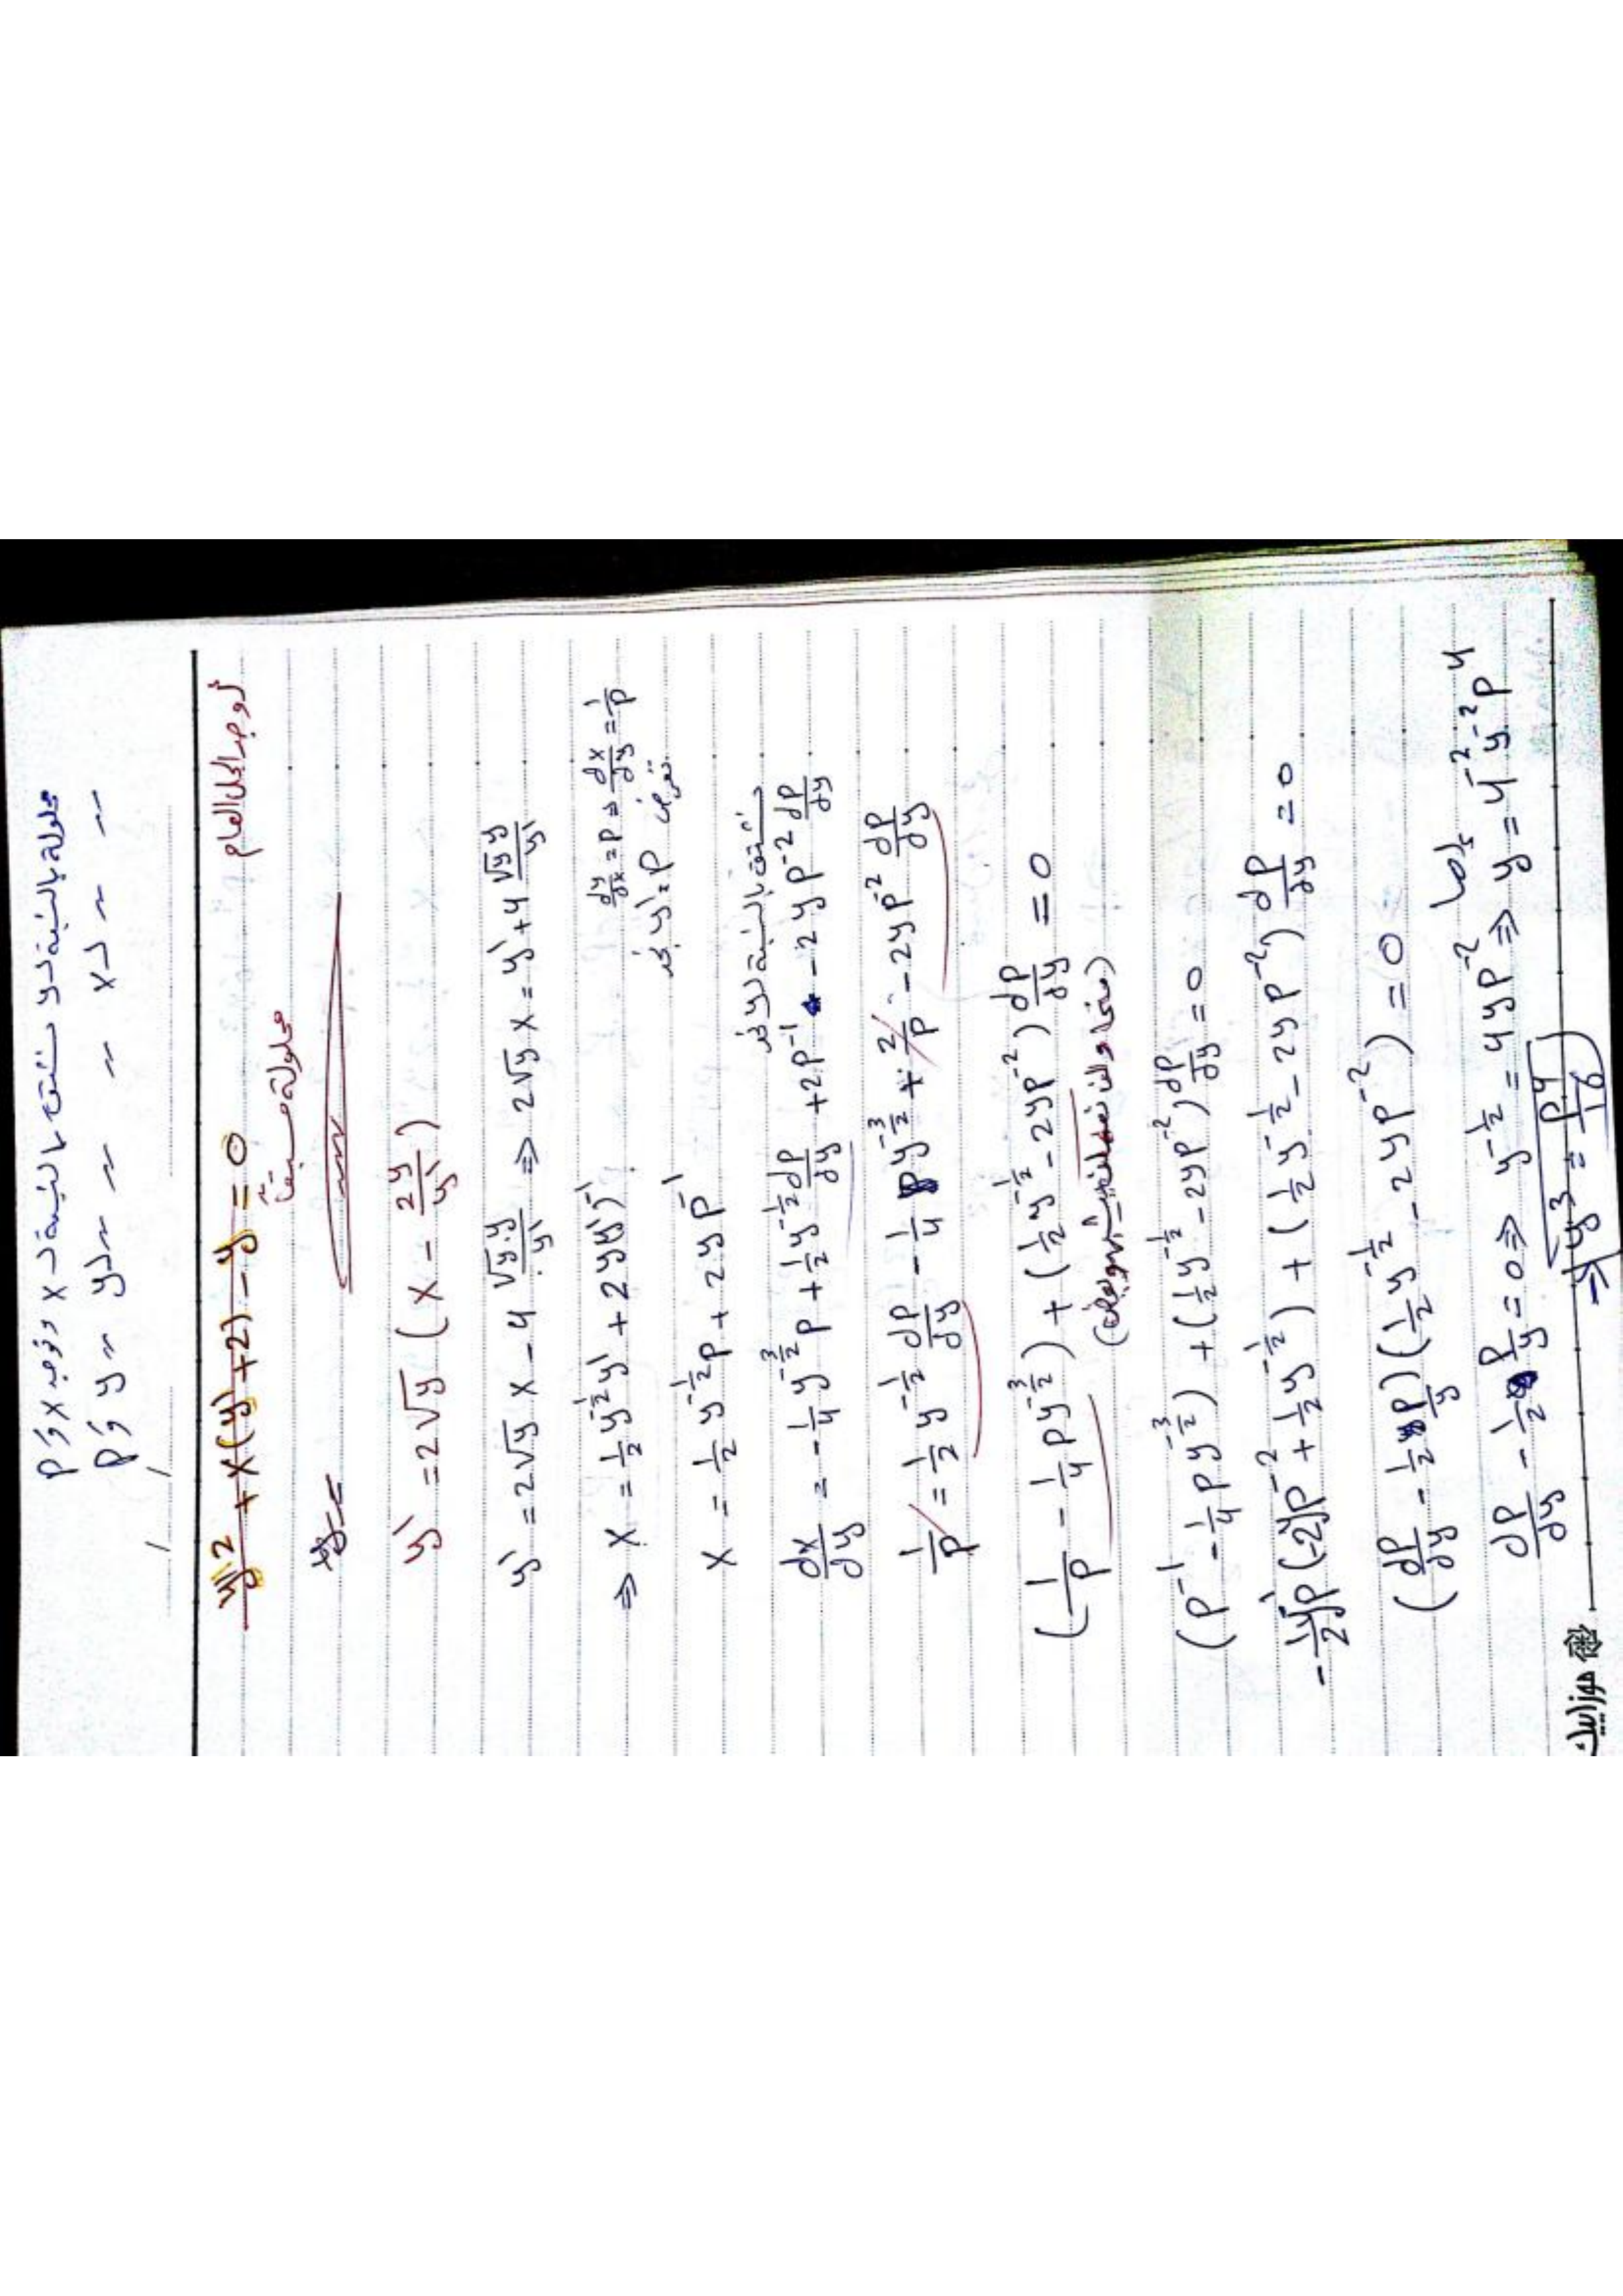 محلولة بالنسبة لـ y نشتق بالنسبة لـ x ونوجد x و P
〃 〃 x لـ 〃 〃 y لـ 〃 y و P
/ /
y'² + x(y'+2) - y = 0 أوجد الحل العام
محلولة مسبقاً
y' = 2√y (x - 2y/y')
y' = 2√y x - 4 √y.y/y' ⇒ 2√y x = y' + 4 √y y/y'
⇒ x = 1/2 y^(-1/2) y' + 2y(y')^(-1) dy/dx = P ⇒ dx/dy = 1/P
نفرض y' = P نجد
x = 1/2 y^(-1/2) P + 2y P^(-1)
نشتق بالنسبة لـ y نجد
dx/dy = -1/4 y^(-3/2) P + 1/2 y^(-1/2) dP/dy + 2P^(-1) - 2y P^(-2) dP/dy
1/P = 1/2 y^(-1/2) dP/dy - 1/4 P y^(-3/2) + 2/P - 2y P^(-2) dP/dy
(1/P - 1/4 P y^(-3/2)) + (1/2 y^(-1/2) - 2y P^(-2)) dP/dy = 0
(P^(-1) - 1/4 P y^(-3/2)) + (1/2 y^(-1/2) - 2y P^(-2)) dP/dy = 0
-1/2 y^(-1) P (-2y P^(-2) + 1/2 y^(-1/2)) + (1/2 y^(-1/2) - 2y P^(-2)) dP/dy = 0
(dP/dy - 1/2 P/y) (1/2 y^(-1/2) - 2y P^(-2)) = 0
dP/dy - 1/2 P/y = 0 ⇒ y^(-1/2) = 4y P^(-2) ⇒ y = 4^(-2) y^(-2) P^4
⇒ y³ = P^4/16
موزاييك